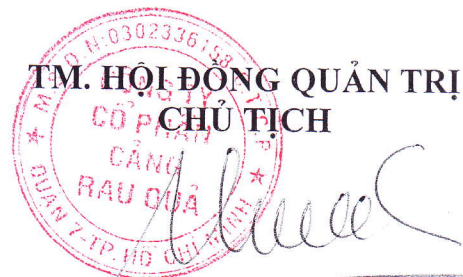 TM. HỘI ĐỒNG QUẢN TRỊ
CHỦ TỊCH
CÔNG TY
CỔ PHẦN
CẢNG
RAU QUẢ
QUẬN 7-TP.HỒ CHÍ MINH